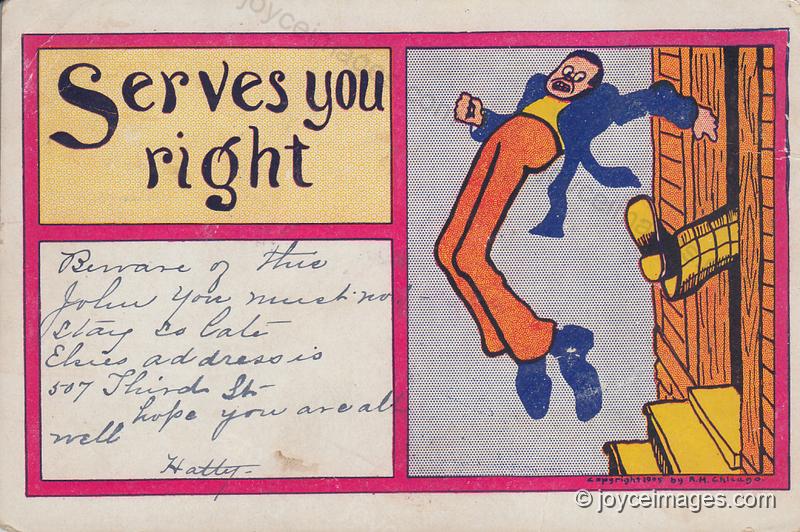 Serves you
right
Beware of this
John you must not
stay so late
Elsies address is
507 Third St
hope you are all
well
Hatty-
Copyright 1905 by R.H. Chicago.
© joyceimages.com
joyceimages